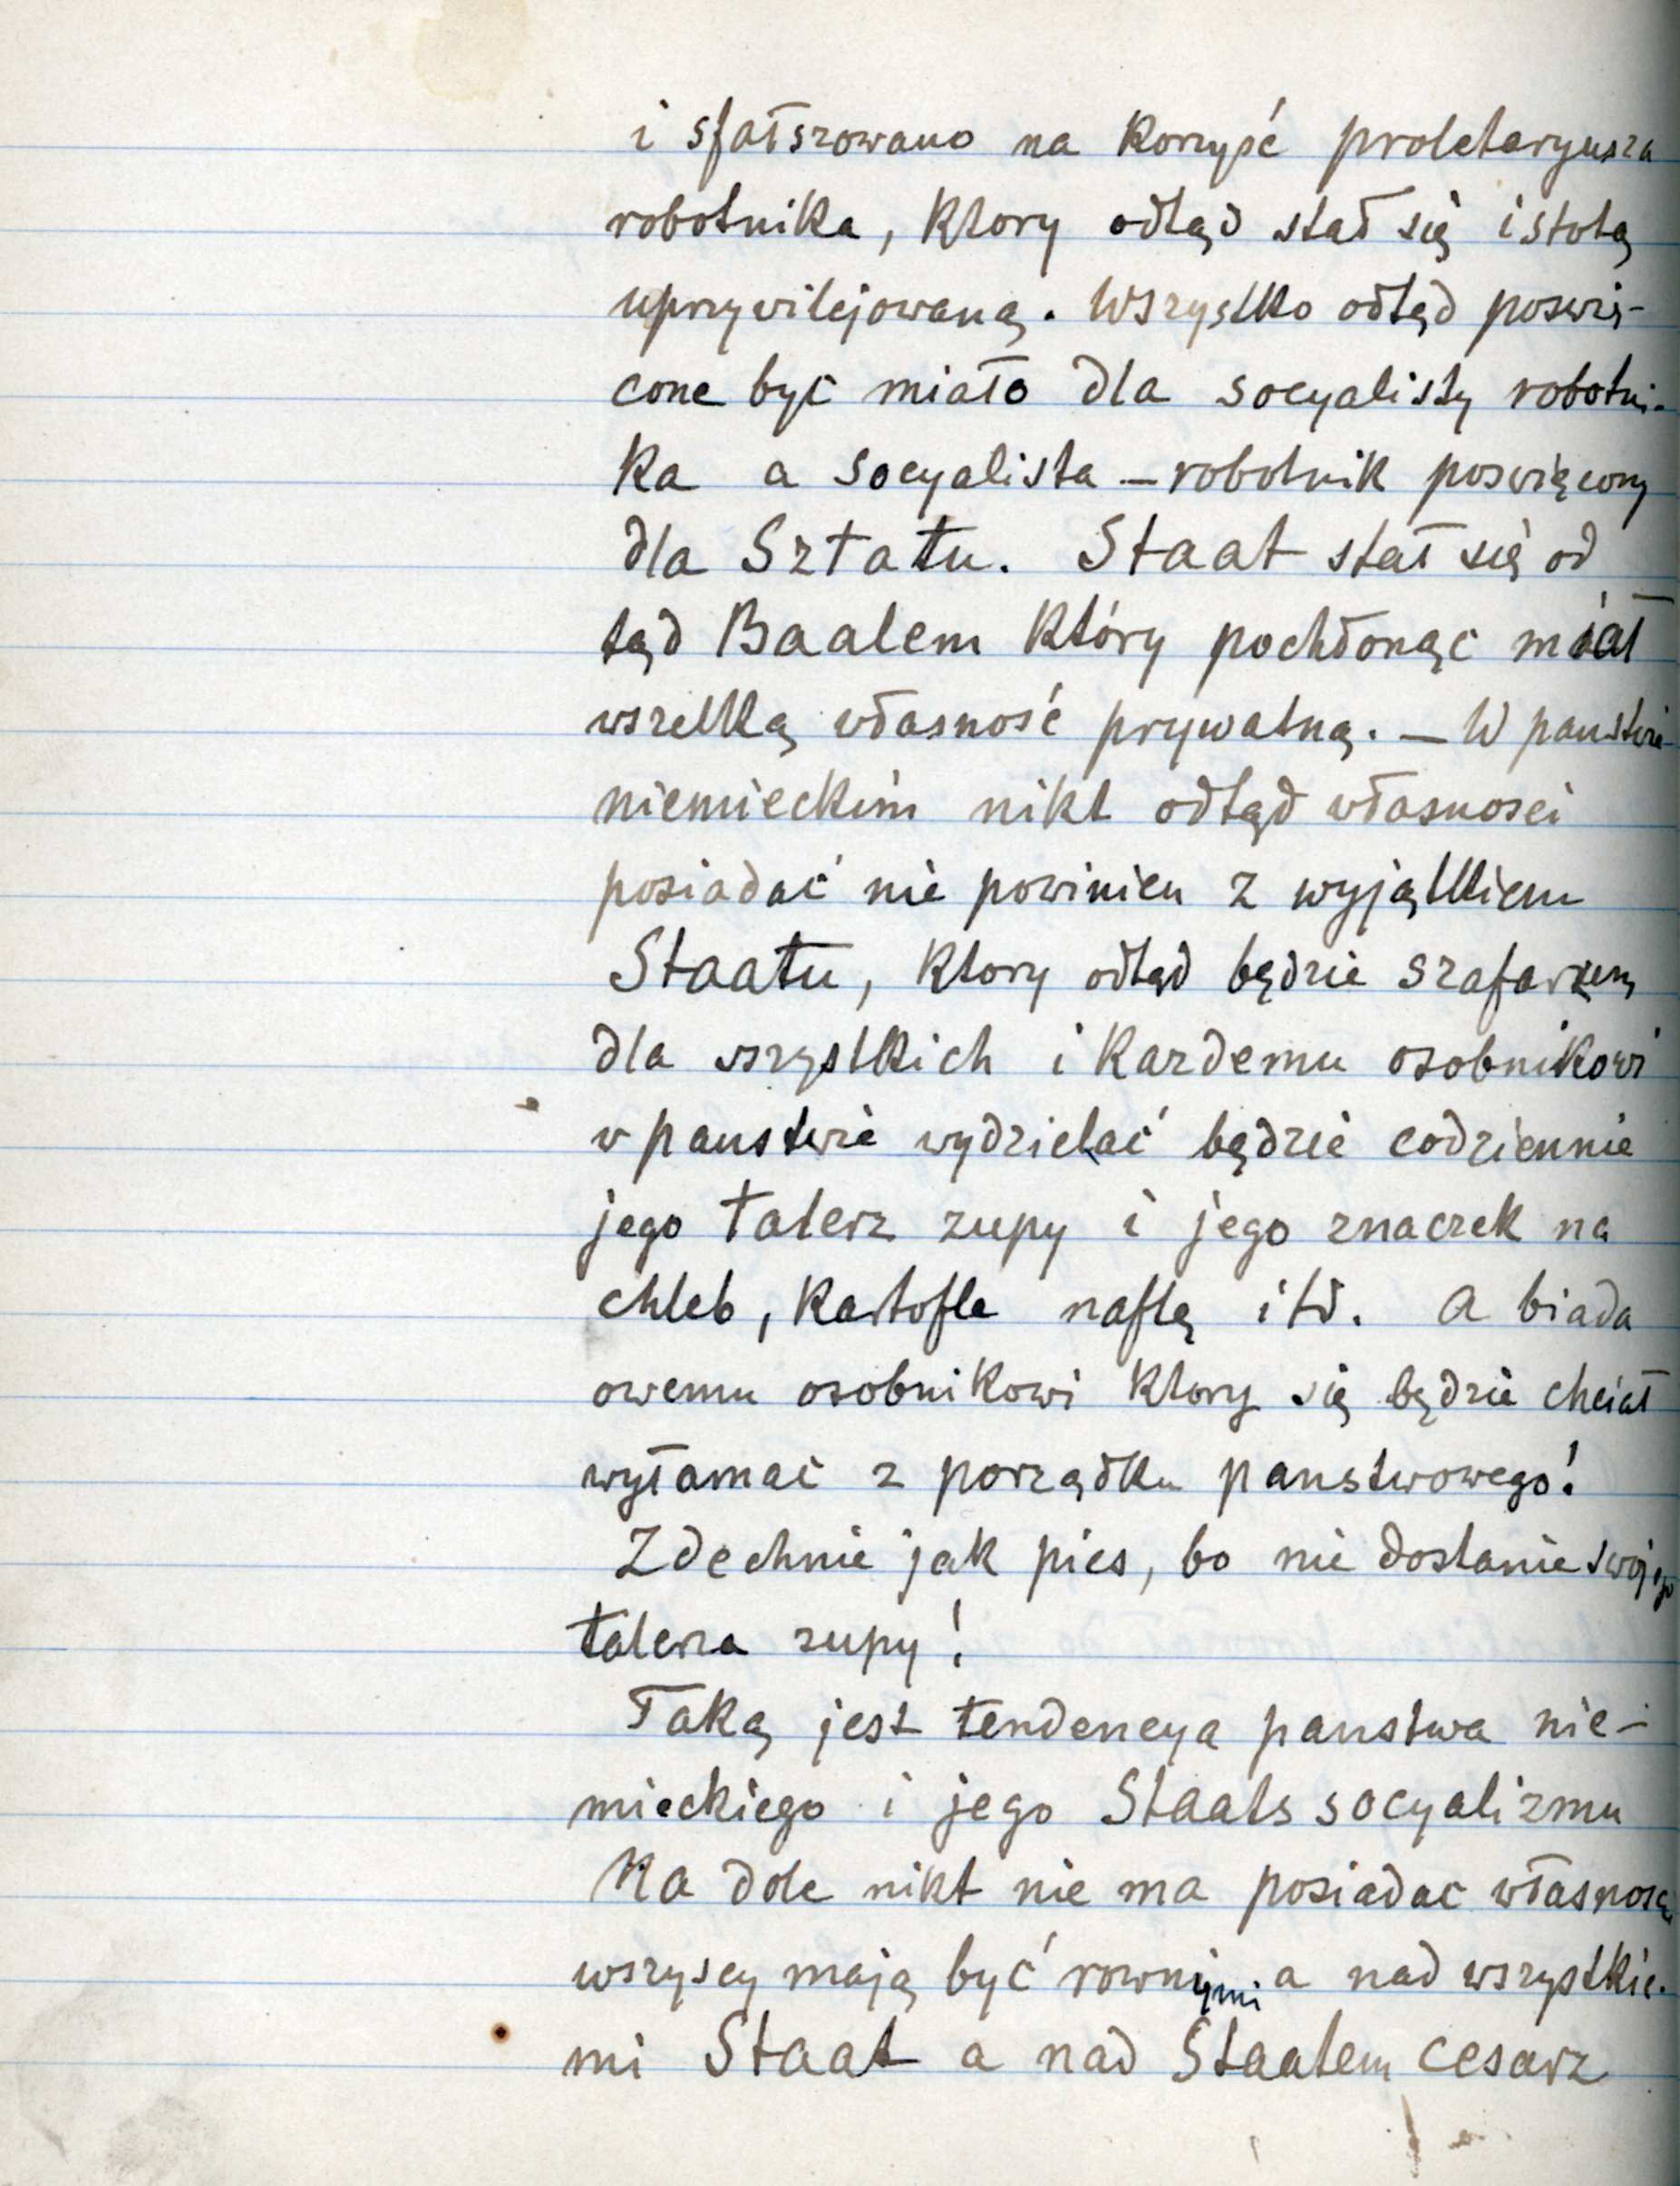 i sfałszowano na Korzyść proletaryusza
robotnika, Ktory odtąd stał się istotą
uprzywilejowaną. Wszystko odtąd poswię-
cone być miało dla socyalisty robotni-
Ka a socyalista - robotnik poswięcony
dla Sztatu. Staat stał się od
tąd Baalem Który pochłonąc miał
wszelką własność prywatną. — W panstwie
niemieckim nikt odtąd własnosci
posiadać nie powinien z wyjątkiem
Staatu, Ktory odtąd będzie szafarzem
dla wszystkich i Kazdemu osobnikowi
w panstwie wydzielać będzie codziennie
jego talerz zupy i jego znaczek na
chleb, Kartofle naftę itd. a biada
owemu osobnikowi Ktory się będzie chciał
wyłamać z porządku panstwowego!
Zdechnie jak pies, bo nie dostanie swojego
talerza zupy!
Taką jest tendencya panstwa nie-
mieckiego i jego Staats socyalizmu
Na dole nikt nie ma posiadac własnosci,
wszyscy mają być rownymi a nad wszystkie-
mi Staat a nad Staatem cesarz